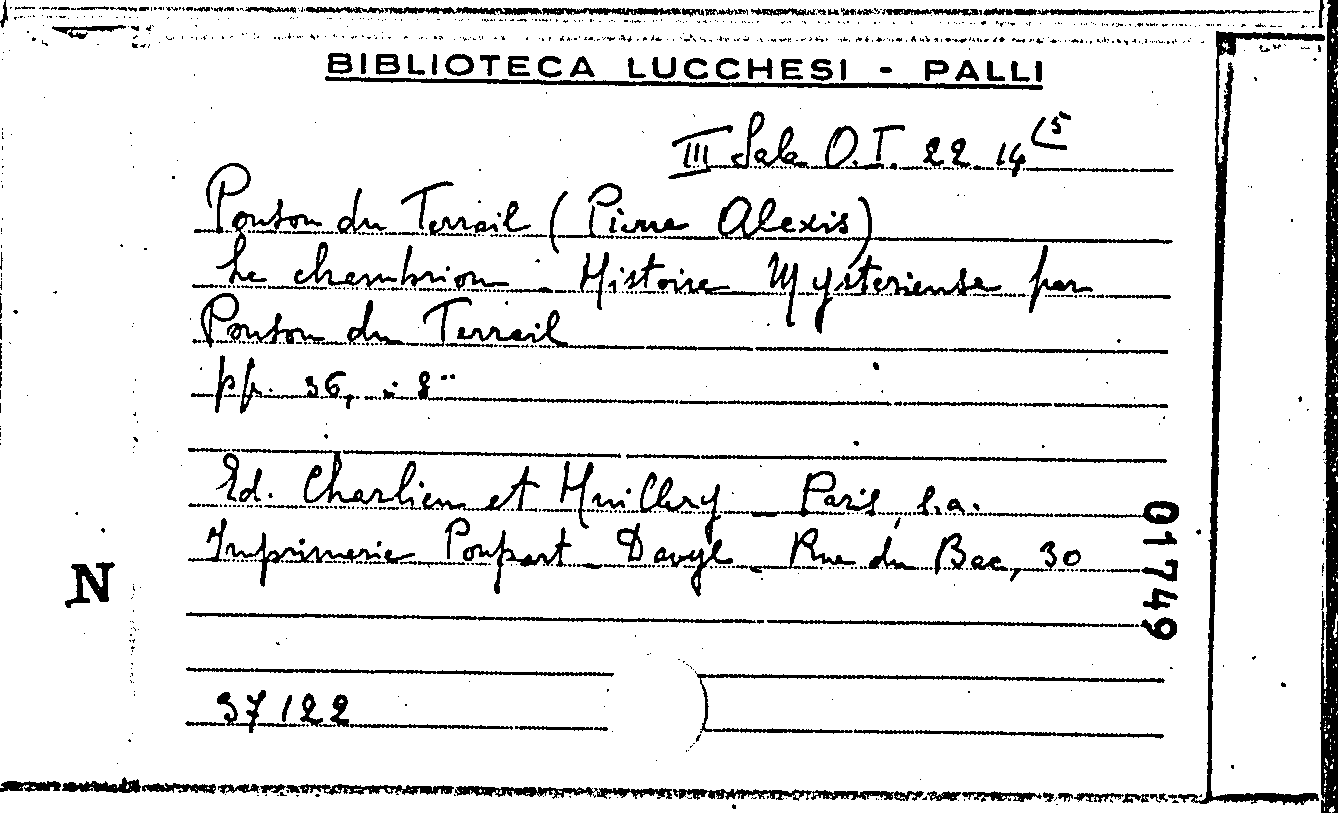 BIBLIOTECA LUCCHESI - PALLI
III Sala O.I. 22 14 (5
Ponson du Terrail (Pierre Alexis)
Le chambrion - Histoire Mysterieuse par
Ponson du Terrail
pp. 36, in 8°
Ed. Charlieu et Huillery - Paris, s.a.
Imprimerie Poupart - Davyl - Rue du Bac, 30
N
01749
37122